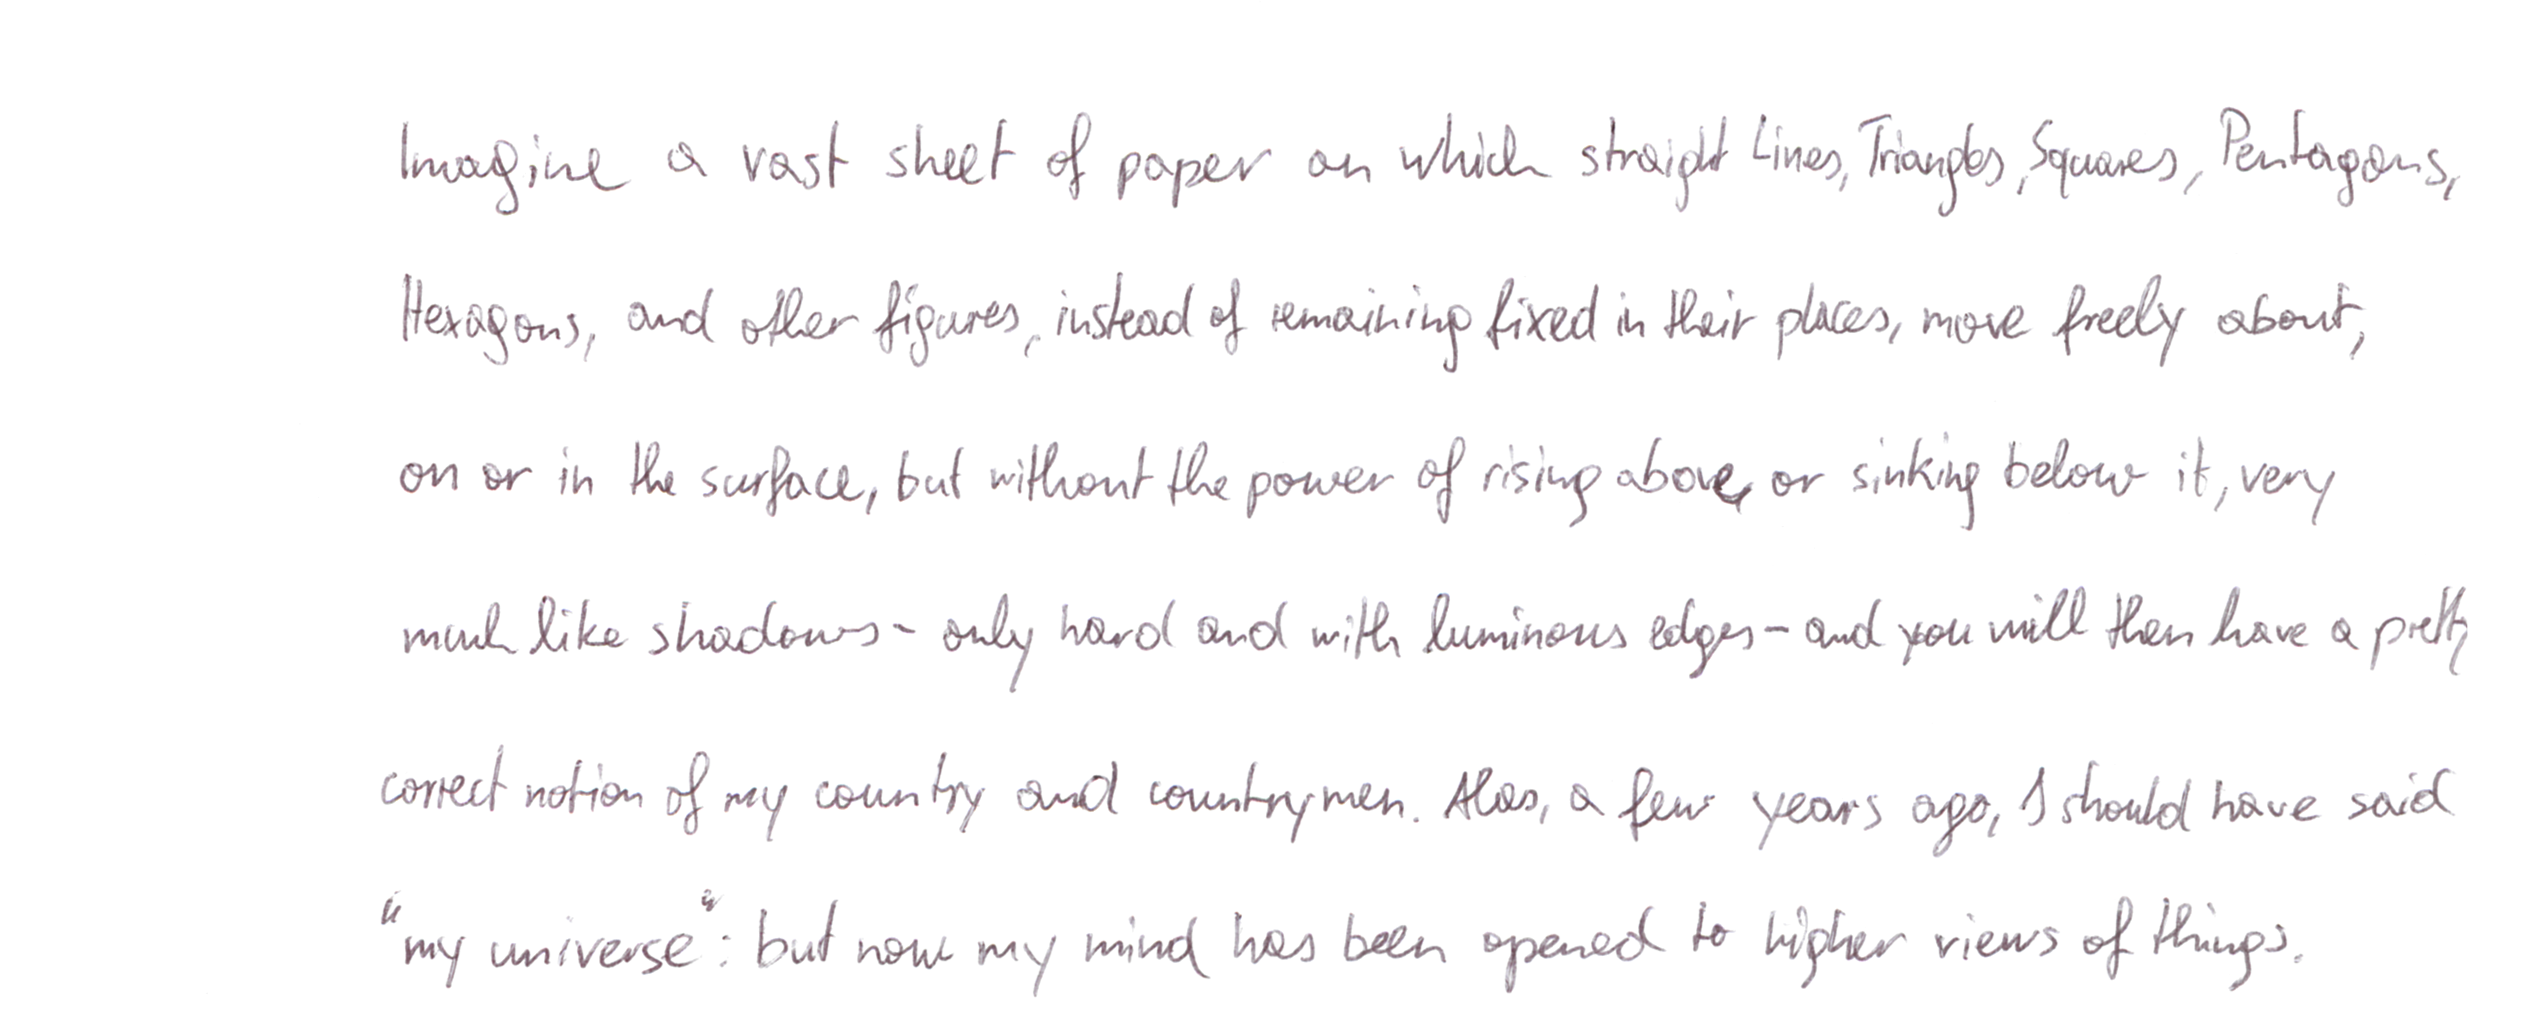 Imagine a vast sheet of paper on which straight Lines, Triangles, Squares, Pentagons,
Hexagons, and other figures, instead of remaining fixed in their places, move freely about,
on or in the surface, but without the power of rising above, or sinking below it, very
much like shadows - only hard and with luminous edges - and you will then have a pretty
correct notion of my country and countrymen. Alas, a few years ago, I should have said
“my universe”: but now my mind has been opened to higher views of things.